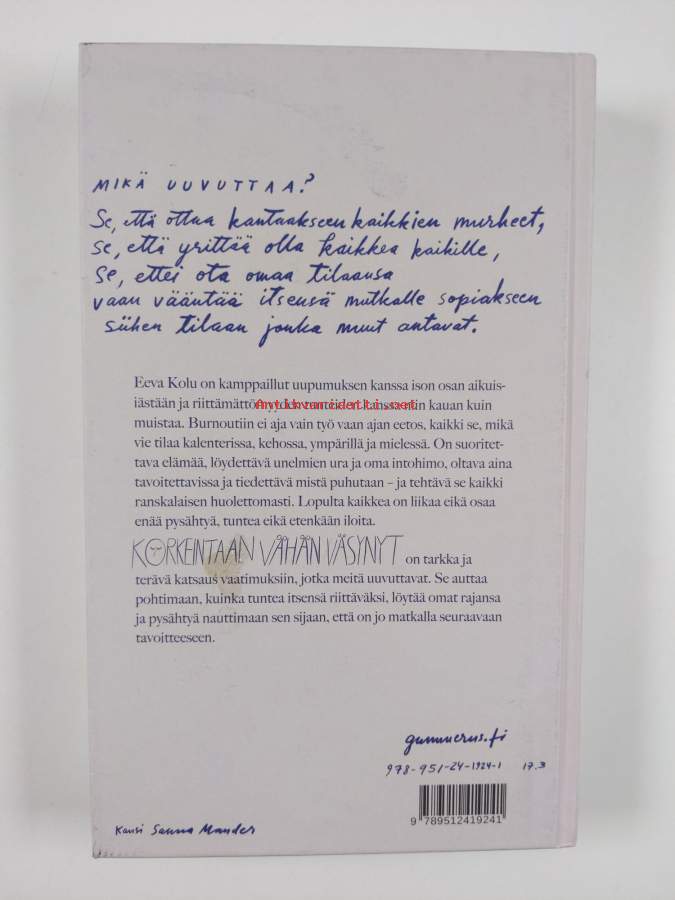 MIKÄ UUVUTTAA?
Se, että ottaa kantaakseen kaikkien murheet,
se, että yrittää olla kaikkea kaikille,
se, ettei ota omaa tilaansa
vaan vääntää itsensä mutkalle sopiakseen
siihen tilaan jonka muut antavat.
Eeva Kolu on kamppaillut uupumuksen kanssa ison osan aikuis-
iästään ja riittämättömyyden tunteiden kanssa niin kauan kuin
Antikvariaatti.net
muistaa. Burnoutiin ei aja vain työ vaan ajan eetos, kaikki se, mikä
vie tilaa kalenterissa, kehossa, ympärillä ja mielessä. On suoritet-
tava elämää, löydettävä unelmien ura ja oma intohimo, oltava aina
tavoitettavissa ja tiedettävä mistä puhutaan – ja tehtävä se kaikki
ranskalaisen huolettomasti. Lopulta kaikkea on liikaa eikä osaa
enää pysähtyä, tuntea eikä etenkään iloita.
KORKEINTAAN VÄHÄN VÄSYNYT on tarkka ja
terävä katsaus vaatimuksiin, jotka meitä uuvuttavat. Se auttaa
pohtimaan, kuinka tuntea itsensä riittäväksi, löytää omat rajansa
ja pysähtyä nauttimaan sen sijaan, että on jo matkalla seuraavaan
tavoitteeseen.
gummerus.fi
978-951-24-1924-1 17.3
9 789512 419241
Kansi Sanna Mander